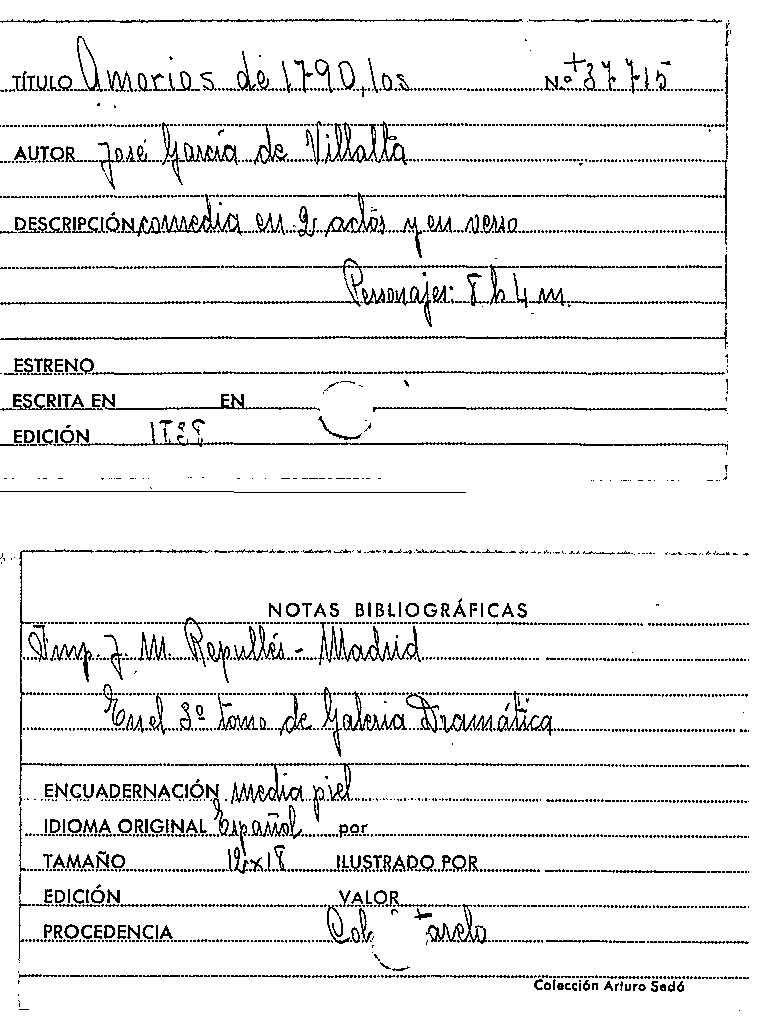 TÍTULO Amorios de 1790, los Nº +37715
AUTOR José García de Villalta
DESCRIPCIÓN comedia en 2 actos y en verso
Personajes: 8 h 4 m.
ESTRENO
ESCRITA EN EN
EDICIÓN 1838
NOTAS BIBLIOGRÁFICAS
Imp. J. M. Repullés - Madrid
En el 3º tomo de Galeria Dramática
ENCUADERNACIÓN media piel
IDIOMA ORIGINAL Español por
TAMAÑO 12x18 ILUSTRADO POR
EDICIÓN VALOR
PROCEDENCIA
Colección Arturo Sedó